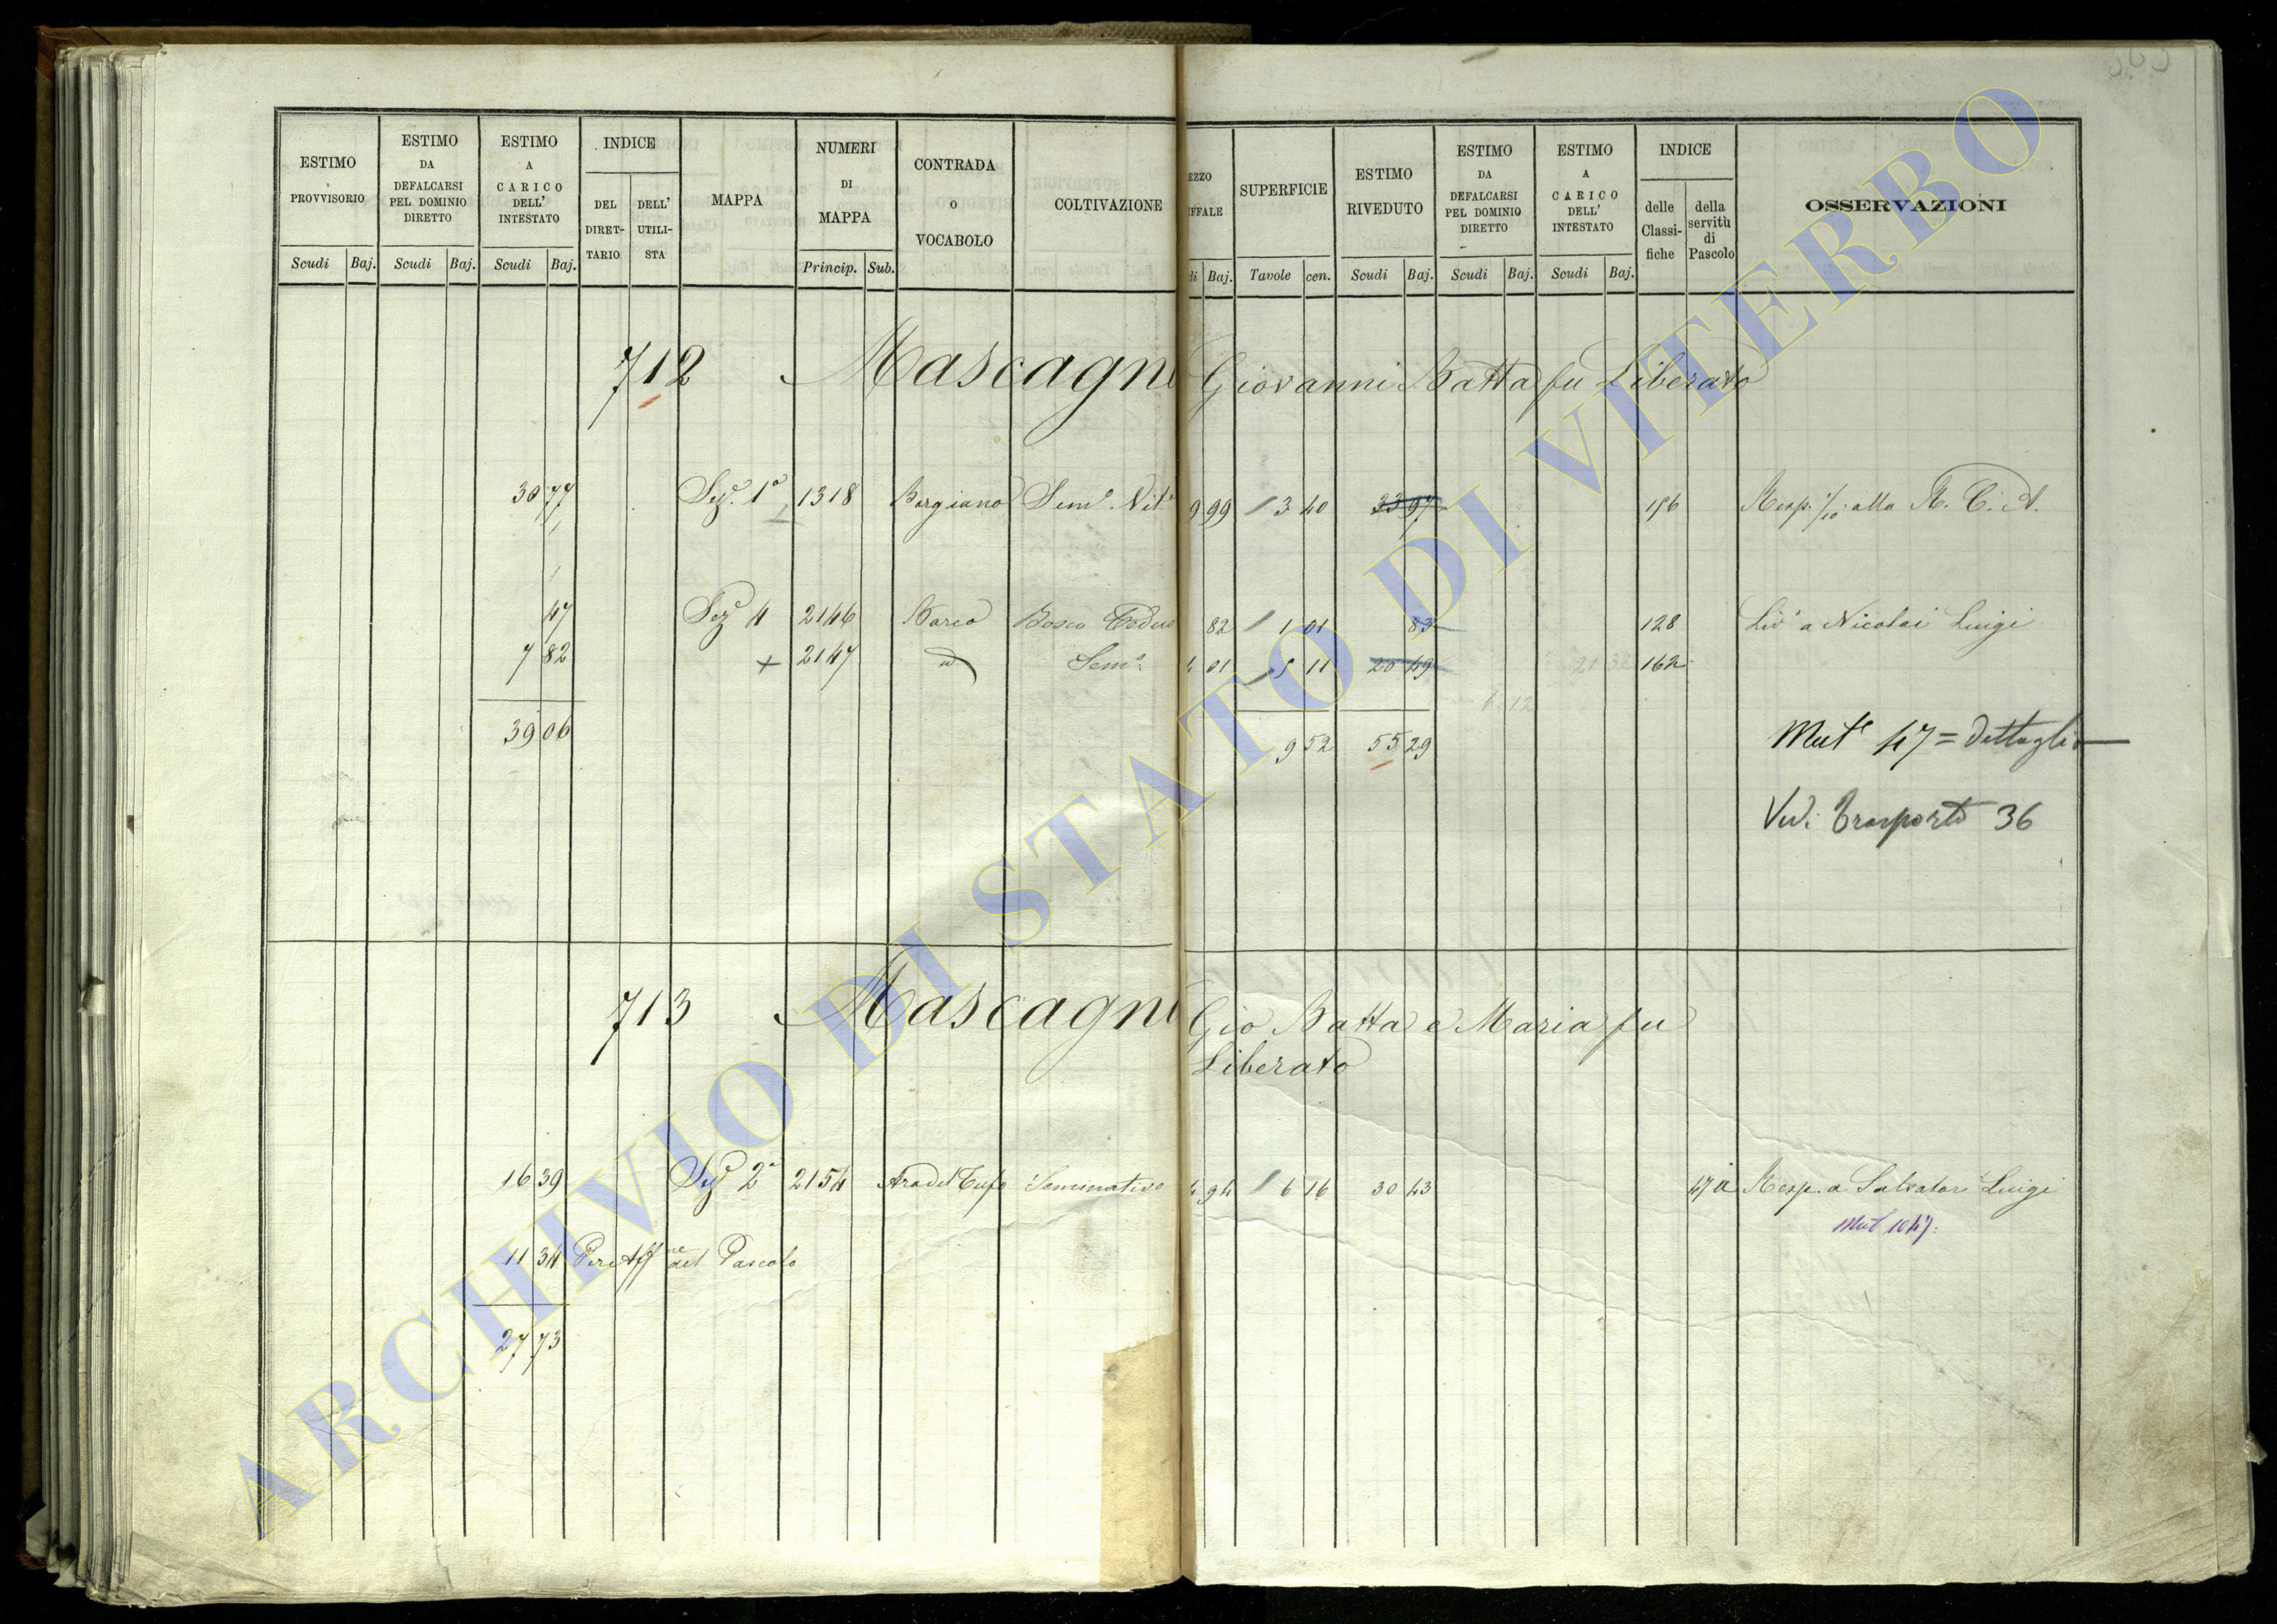 ESTIMO PROVVISORIO
Scudi Baj.
ESTIMO DA DEFALCARSI PEL DOMINIO DIRETTO
Scudi Baj.
ESTIMO A CARICO DELL' INTESTATO
Scudi Baj.
INDICE
DEL DIRET-TARIO
DELL' UTILI-STA
MAPPA
NUMERI DI MAPPA
Princip. Sub.
CONTRADA O VOCABOLO
COLTIVAZIONE
EZZO
IFFALE
di Baj.
SUPERFICIE
Tavole cen.
ESTIMO RIVEDUTO
Scudi Baj.
ESTIMO DA DEFALCARSI PEL DOMINIO DIRETTO
Scudi Baj.
ESTIMO A CARICO DELL' INTESTATO
Scudi Baj.
INDICE
delle Classi-fiche
della servitù di Pascolo
OSSERVAZIONI
712 Mascagni Giovanni Batta fu Liberato
30 77 Sez.e 1a 1318 Borgiano Sem.o Vit.o 9 99 3 40 33 97 156 Resp. alla R. C. A.
47 Sez.e 4 2146 Barco Bosco Ceduo 82 1 01 83 128 Liv.o a Nicolai Luigi
7 82 + 2147 id Sem.o 4 01 5 11 20 49 21 32 162
6 12
39 06 9 52 55 29 Mut.e 47 = Dettaglio
Ved. Trasporto 36
713 Mascagni Gio Batta e Maria fu
Liberato
16 39 Sez.e 2a 2154 Ara del Tufo Seminativo 4 94 6 16 30 43 47 a Resp. a Salvatori Luigi
Mut 1047.
11 34 Per Aff.ne del Pascolo
27 73
ARCHIVIO DI STATO DI VITERBO